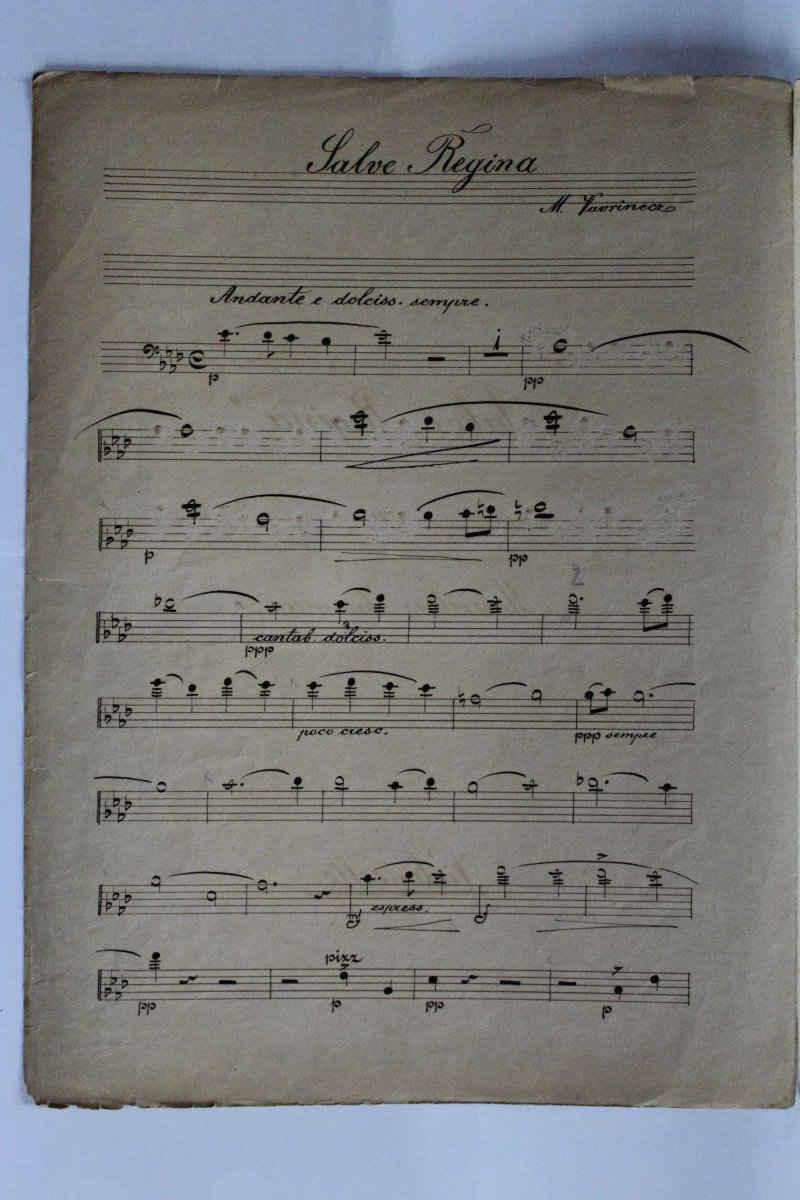 Salve Regina
M. Vavrinecz
Andante e dolciss. sempre.
p
1
pp
p
pp
2
cantab. dolciss.
ppp
poco cresc.
ppp sempre
espress.
pizz
pp p pp p